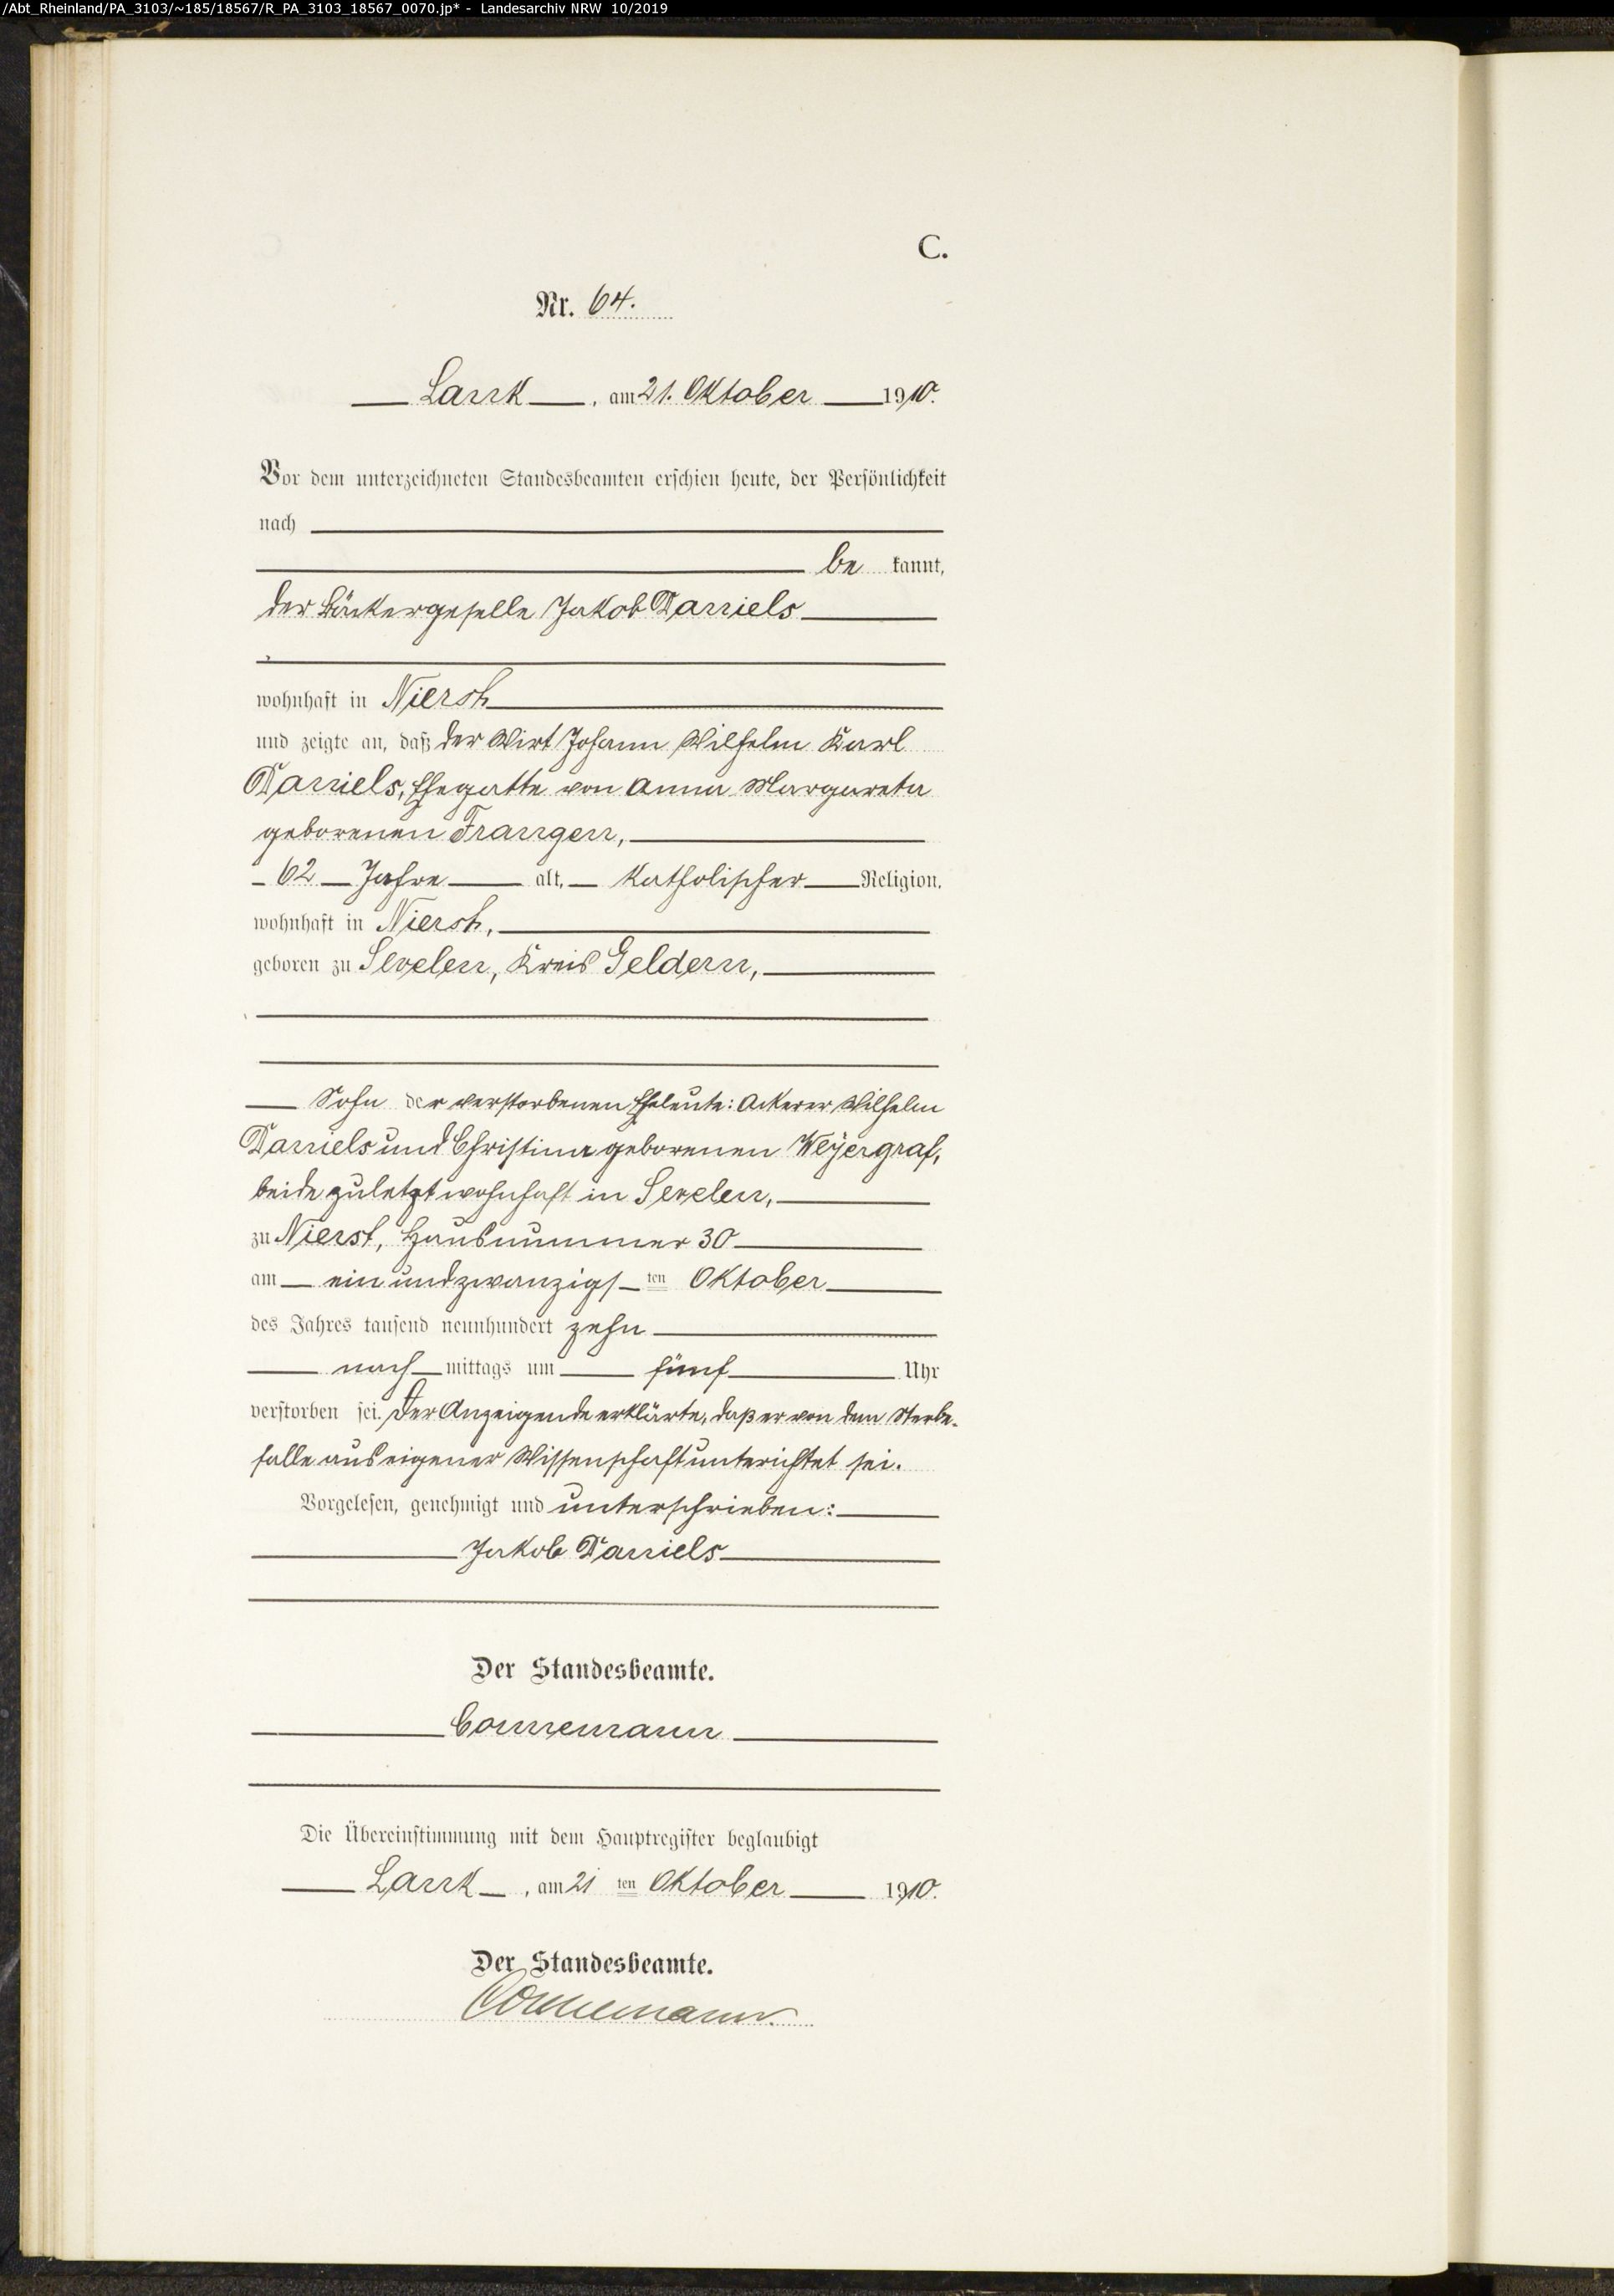 /Abt_Rheinland/PA_3103/~185/18567/R_PA_3103_18567_0070.jp* - Landesarchiv NRW 10/2019
C.
Nr. 64.
Lank, am 21. Oktober 1910.
Vor dem unterzeichneten Standesbeamten erschien heute, der Persönlichkeit
nach
be kannt,
der Bäckergeselle Jakob Daniels
wohnhaft in Nierst
und zeigte an, daß der Wirt Johann Wilhelm Karl
Daniels, Ehegatte von Anna Margareta
geborenen Frangen,
62 Jahre alt, katholischer Religion,
wohnhaft in Nierst,
geboren zu Sevelen, Kreis Geldern,
Sohn der verstorbenen Eheleute: Ackerer Wilhelm
Daniels und Christina geborenen Weyergraf,
beide zuletzt wohnhaft in Sevelen,
zu Nierst, Hausnummer 30
am ein und zwanzigs ten Oktober
des Jahres tausend neunhundert zehn
nach mittags um fünf Uhr
verstorben sei. Der Anzeigende erklärte, daß er von dem Sterbe-
falle aus eigener Wissenschaft unterichtet sei.
Vorgelesen, genehmigt und unterschrieben:
Jakob Daniels
Der Standesbeamte.
Connemann
Die Übereinstimmung mit dem Hauptregister beglaubigt
Lank, am 21 ten Oktober 1910.
Der Standesbeamte.
Connemann.